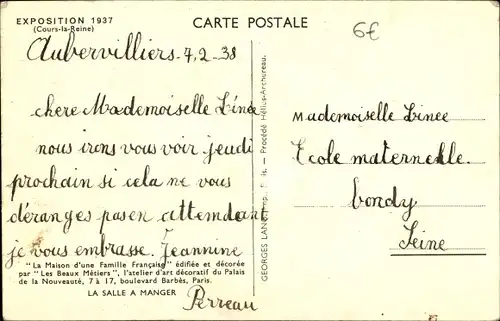 EXPOSITION 1937
(Cours-la-Reine)
CARTE POSTALE
6€
Aubervilliers 7.2.38
chere Mademoiselle Linée
nous irons vous voir jeudi
prochain si cela ne vous
déranges pas en attemdant
je vous embrasse. Jeannine
Perreau
"La Maison d'une Famille Française" édifiée et décorée
par "Les Beaux Métiers", l'atelier d'art décoratif du Palais
de la Nouveauté, 7 à 17, boulevard Barbès, Paris.
LA SALLE A MANGER
GEORGES LANG, Imp. Paris. — Procédé Hélios-Archereau.
Mademoiselle Linee
Ecole maternelle.
bondy
Seine